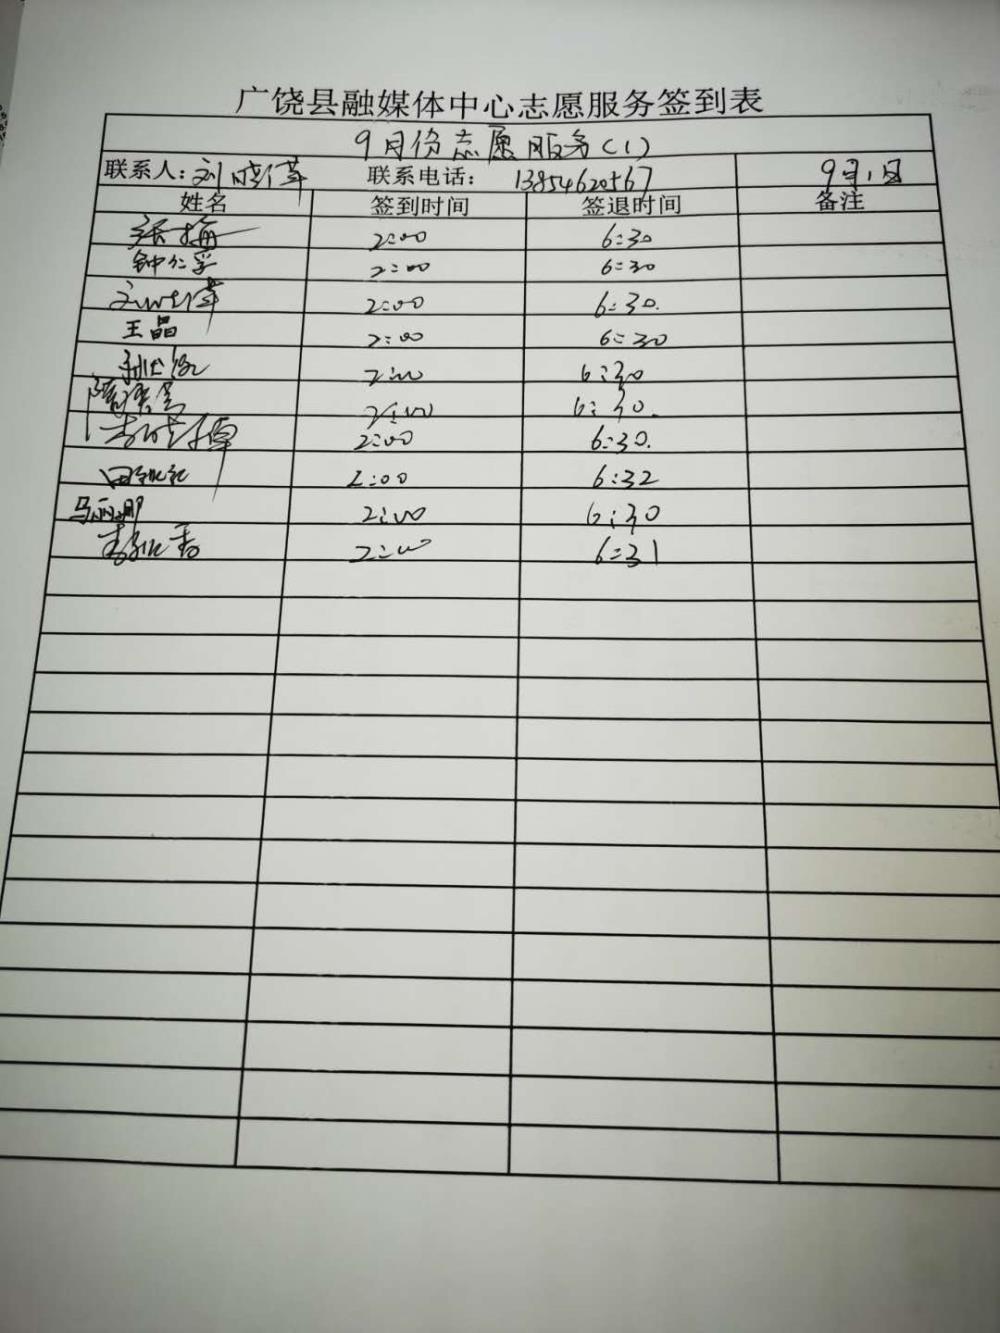 广饶县融媒体中心志愿服务签到表
9月份志愿服务(1)
联系人:刘晓萍 联系电话: 13854620567 9月1日
姓名 签到时间 签退时间 备注
张梅 2:00 6:30
钟仁孚 2:00 6:30
2:00 6:30.
王晶 2:00 6:30
2:00 6:30
2:00 6:30.
2:00 6:30.
田 2:00 6:32
马丽娜 2:00 6:30
李 香 2:00 6:31